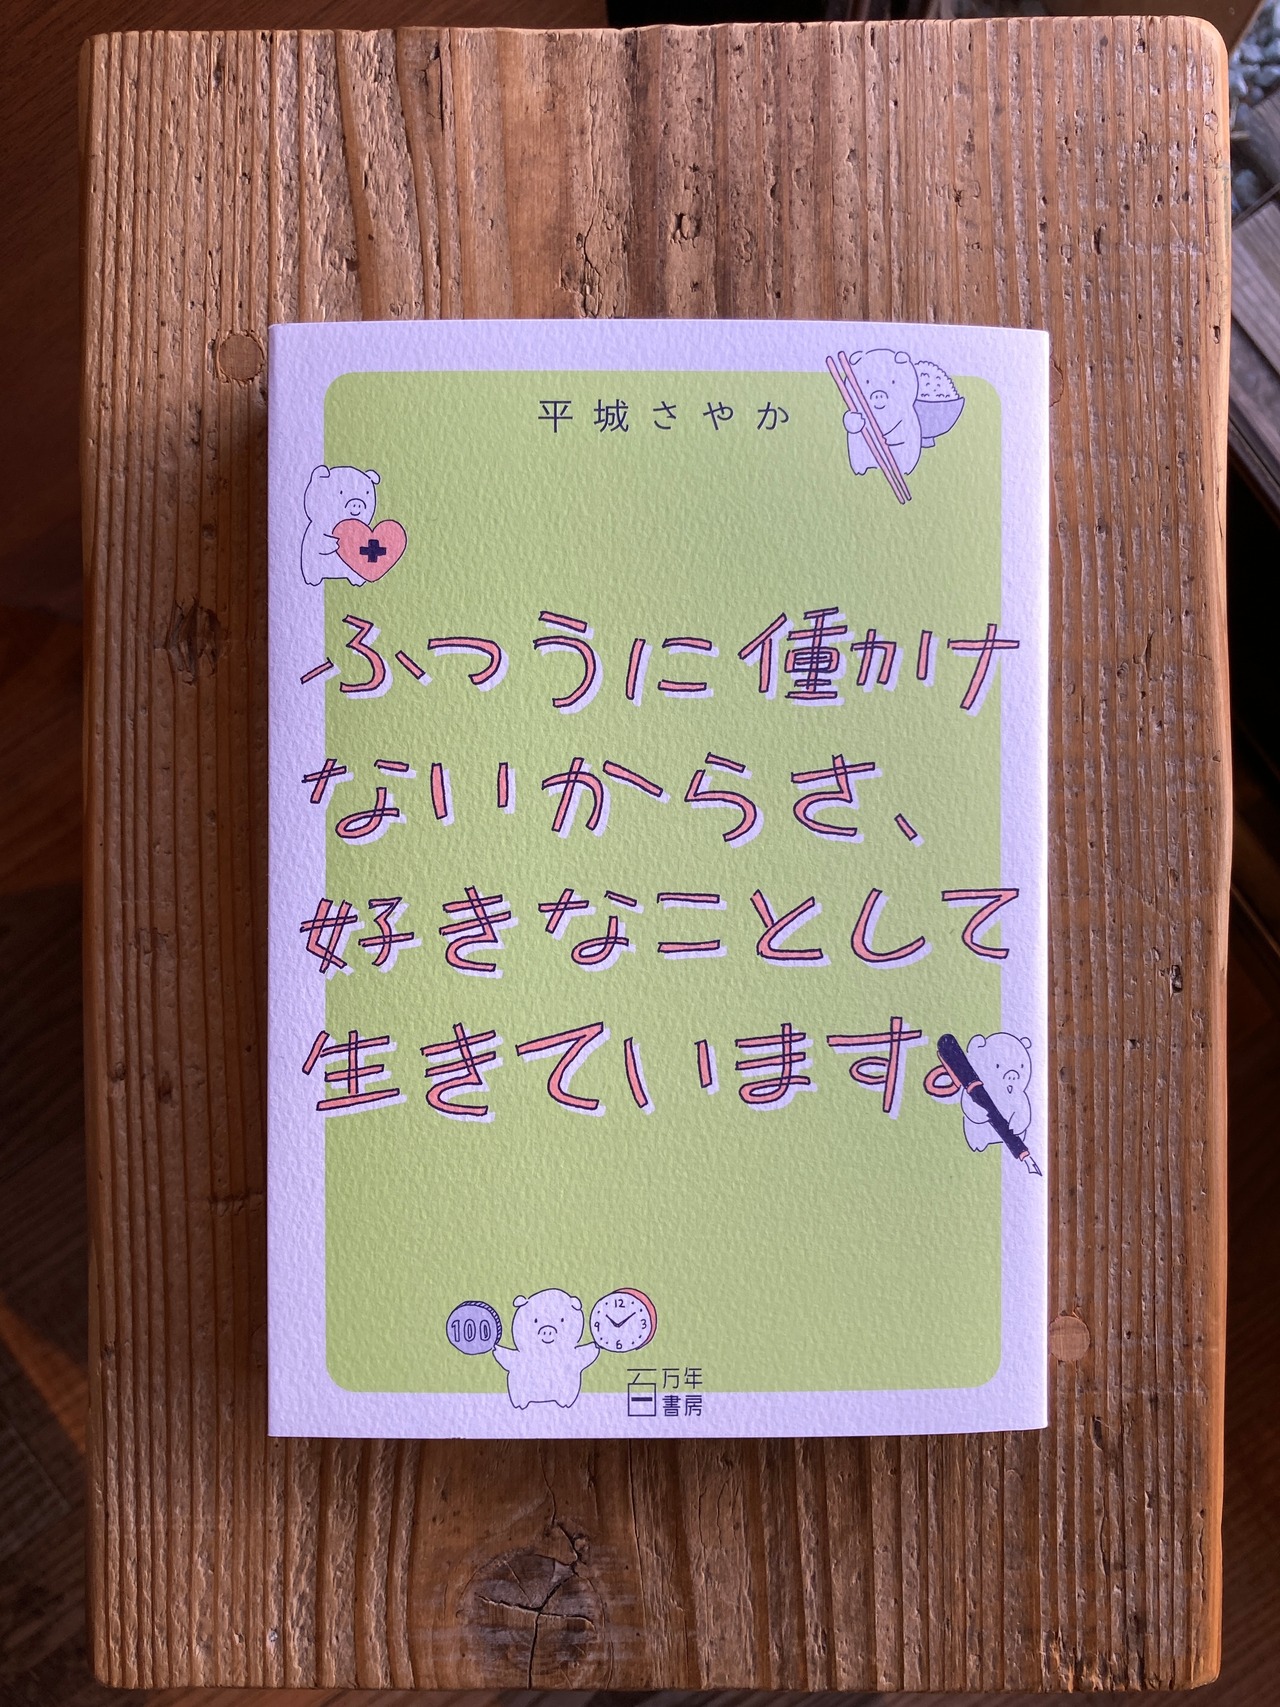 平城さやか
ふつうに働かけ
ないからさ、
好きなことして
生きています。
100
12
9 3
6
百万年
書房